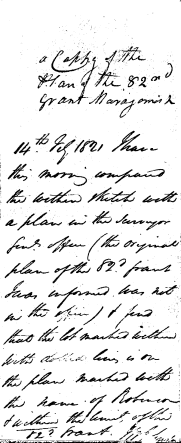 a Coppy of the
Plan of the 82nd
Grant Maragomish
14th Feby 1821 I have
this morning compared
the within sketch with
a plan in the Surveyor
Genls. office (the original
plan of the 82d grant
I was informed was not
in the office) & find
that the lot marked within
with dotted lines is on
the plan marked with
the name of Robinson
& within the limit of the
82d Grant